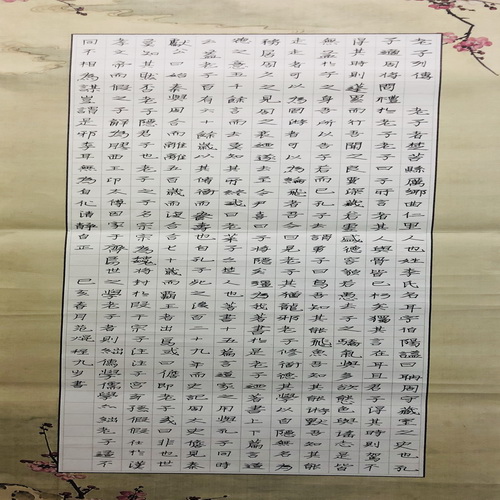 老子列傳 老子者楚苦縣厲鄉曲仁里人也姓李氏名耳字伯陽謚曰聃周守藏室之史也孔
子適周將問禮於老子老子曰子所言者其人與骨皆已朽矣獨其言在耳且君子得其時則駕不
得其時則蓬累而行吾聞之良賈深藏若虛君子盛德容貌若愚去子之驕氣與多欲態色與淫志是皆
無益於子之身吾所以告子若是而已孔子去謂弟子曰鳥吾知其能飛魚吾知其能游獸吾知其能
走走者可以為罔游者可以為綸飛者吾今日見老子其猶龍邪老子修道德其學以自隱無名為
務居周久之見周之衰迺遂去至令尹喜曰子將隱矣彊為我著書於是老子迺著書上下篇言道
德之意五千餘言而去莫知其所終或曰老萊子亦楚人也著書十五篇言道家之用與孔子同時
云蓋老子百有六十餘歲以其修道而養壽也自孔子死之後百二十九年而史記周太史儋見秦
獻公曰始秦與周合而離離五百歲而復合合七十歲而霸王者出焉或曰儋即老子或曰非也世
莫知其然否老子隱君子也老子之子名宗宗為魏將封於段干宗子注注子宮宮玄孫假假仕於漢
孝文帝而假之子解為膠西王卬太傅因家于齊焉世之學老子者則絀儒學儒學亦絀老子道不
同不相為謀豈謂是邪李耳無為自化清靜自正 己亥春月范程九歲書